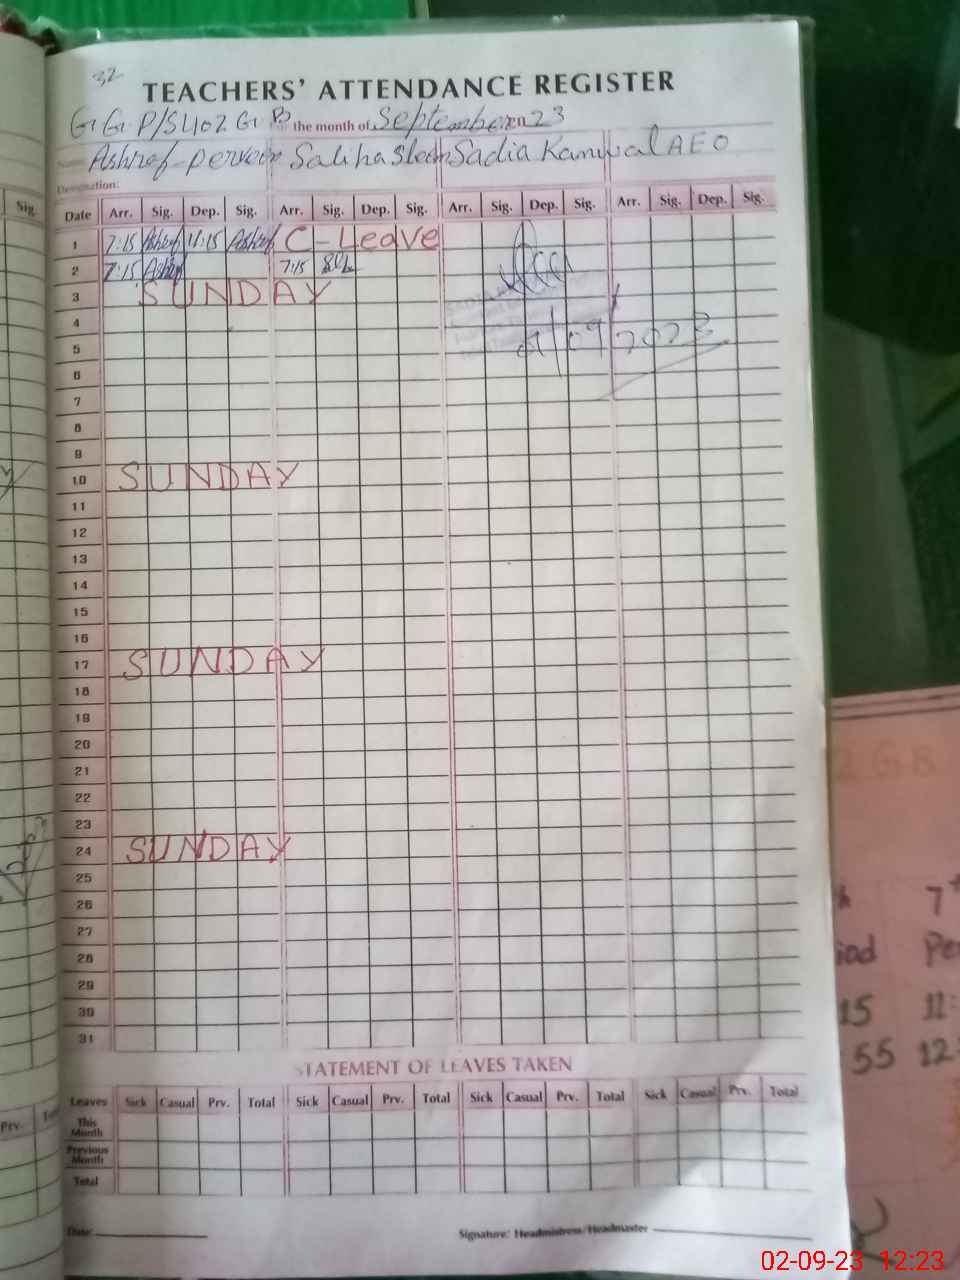 32
TEACHERS' ATTENDANCE REGISTER
G.G.P/S 402 G.B For the month of September 2023
Name: Ashraf perveen Saliha Sleem Sadia Kanwal AEO
Designation:
Sig. Date Arr. Sig. Dep. Sig. Arr. Sig. Dep. Sig. Arr. Sig. Dep. Sig. Arr. Sig. Dep. Sig.
1 7:15 Ashraf 11:15 Ashraf C - Leave
2 7:15 Ashraf 7:15
3 SUNDAY
4
5 /09/2023
6
7
8
9
10 SUNDAY
11
12
13
14
15
16
17 SUNDAY
18
19
20
21
22
23
24 SUNDAY
25
26
27
28
29
30
31
STATEMENT OF LEAVES TAKEN
Leaves Sick Casual Prv. Total Sick Casual Prv. Total Sick Casual Prv. Total Sick Casual Prv. Total
This Month
Previous Month
Total
Date Signature: Headmistress/Headmaster
Prv.
2 G B
7
iod Pe
15 11:
55 12:
02-09-23 12:23